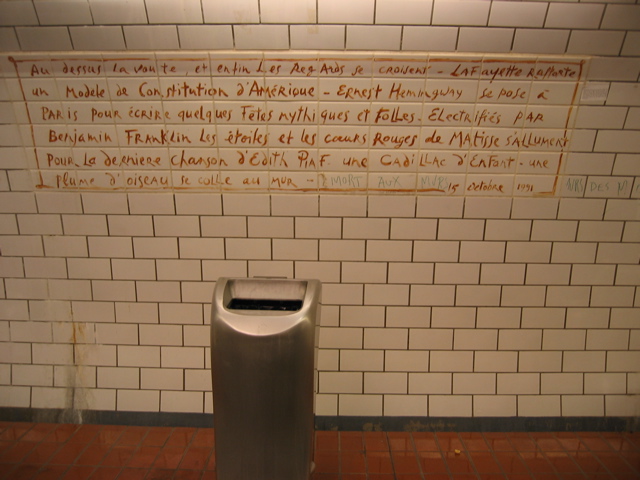 Au dessus la voute, et enfin Les RegArds se croisent - LAFayette RAPPorte
un Modele de Constitution d'Amérique - Ernest Hemingway se pose à
PARis pour écrire quelques Fêtes mythiques et Folles. Electrifiés PAR
Benjamin Franklin Les étoiles et les cœurs Rouges de MAtisse s'Allument
Pour La derniere chanson d'Edith PiaF. une CAdiLLac d'EnFant - une
Plume d'oiseau se colle au mur - MORT AUX MURS 15 octobre 1991 DES